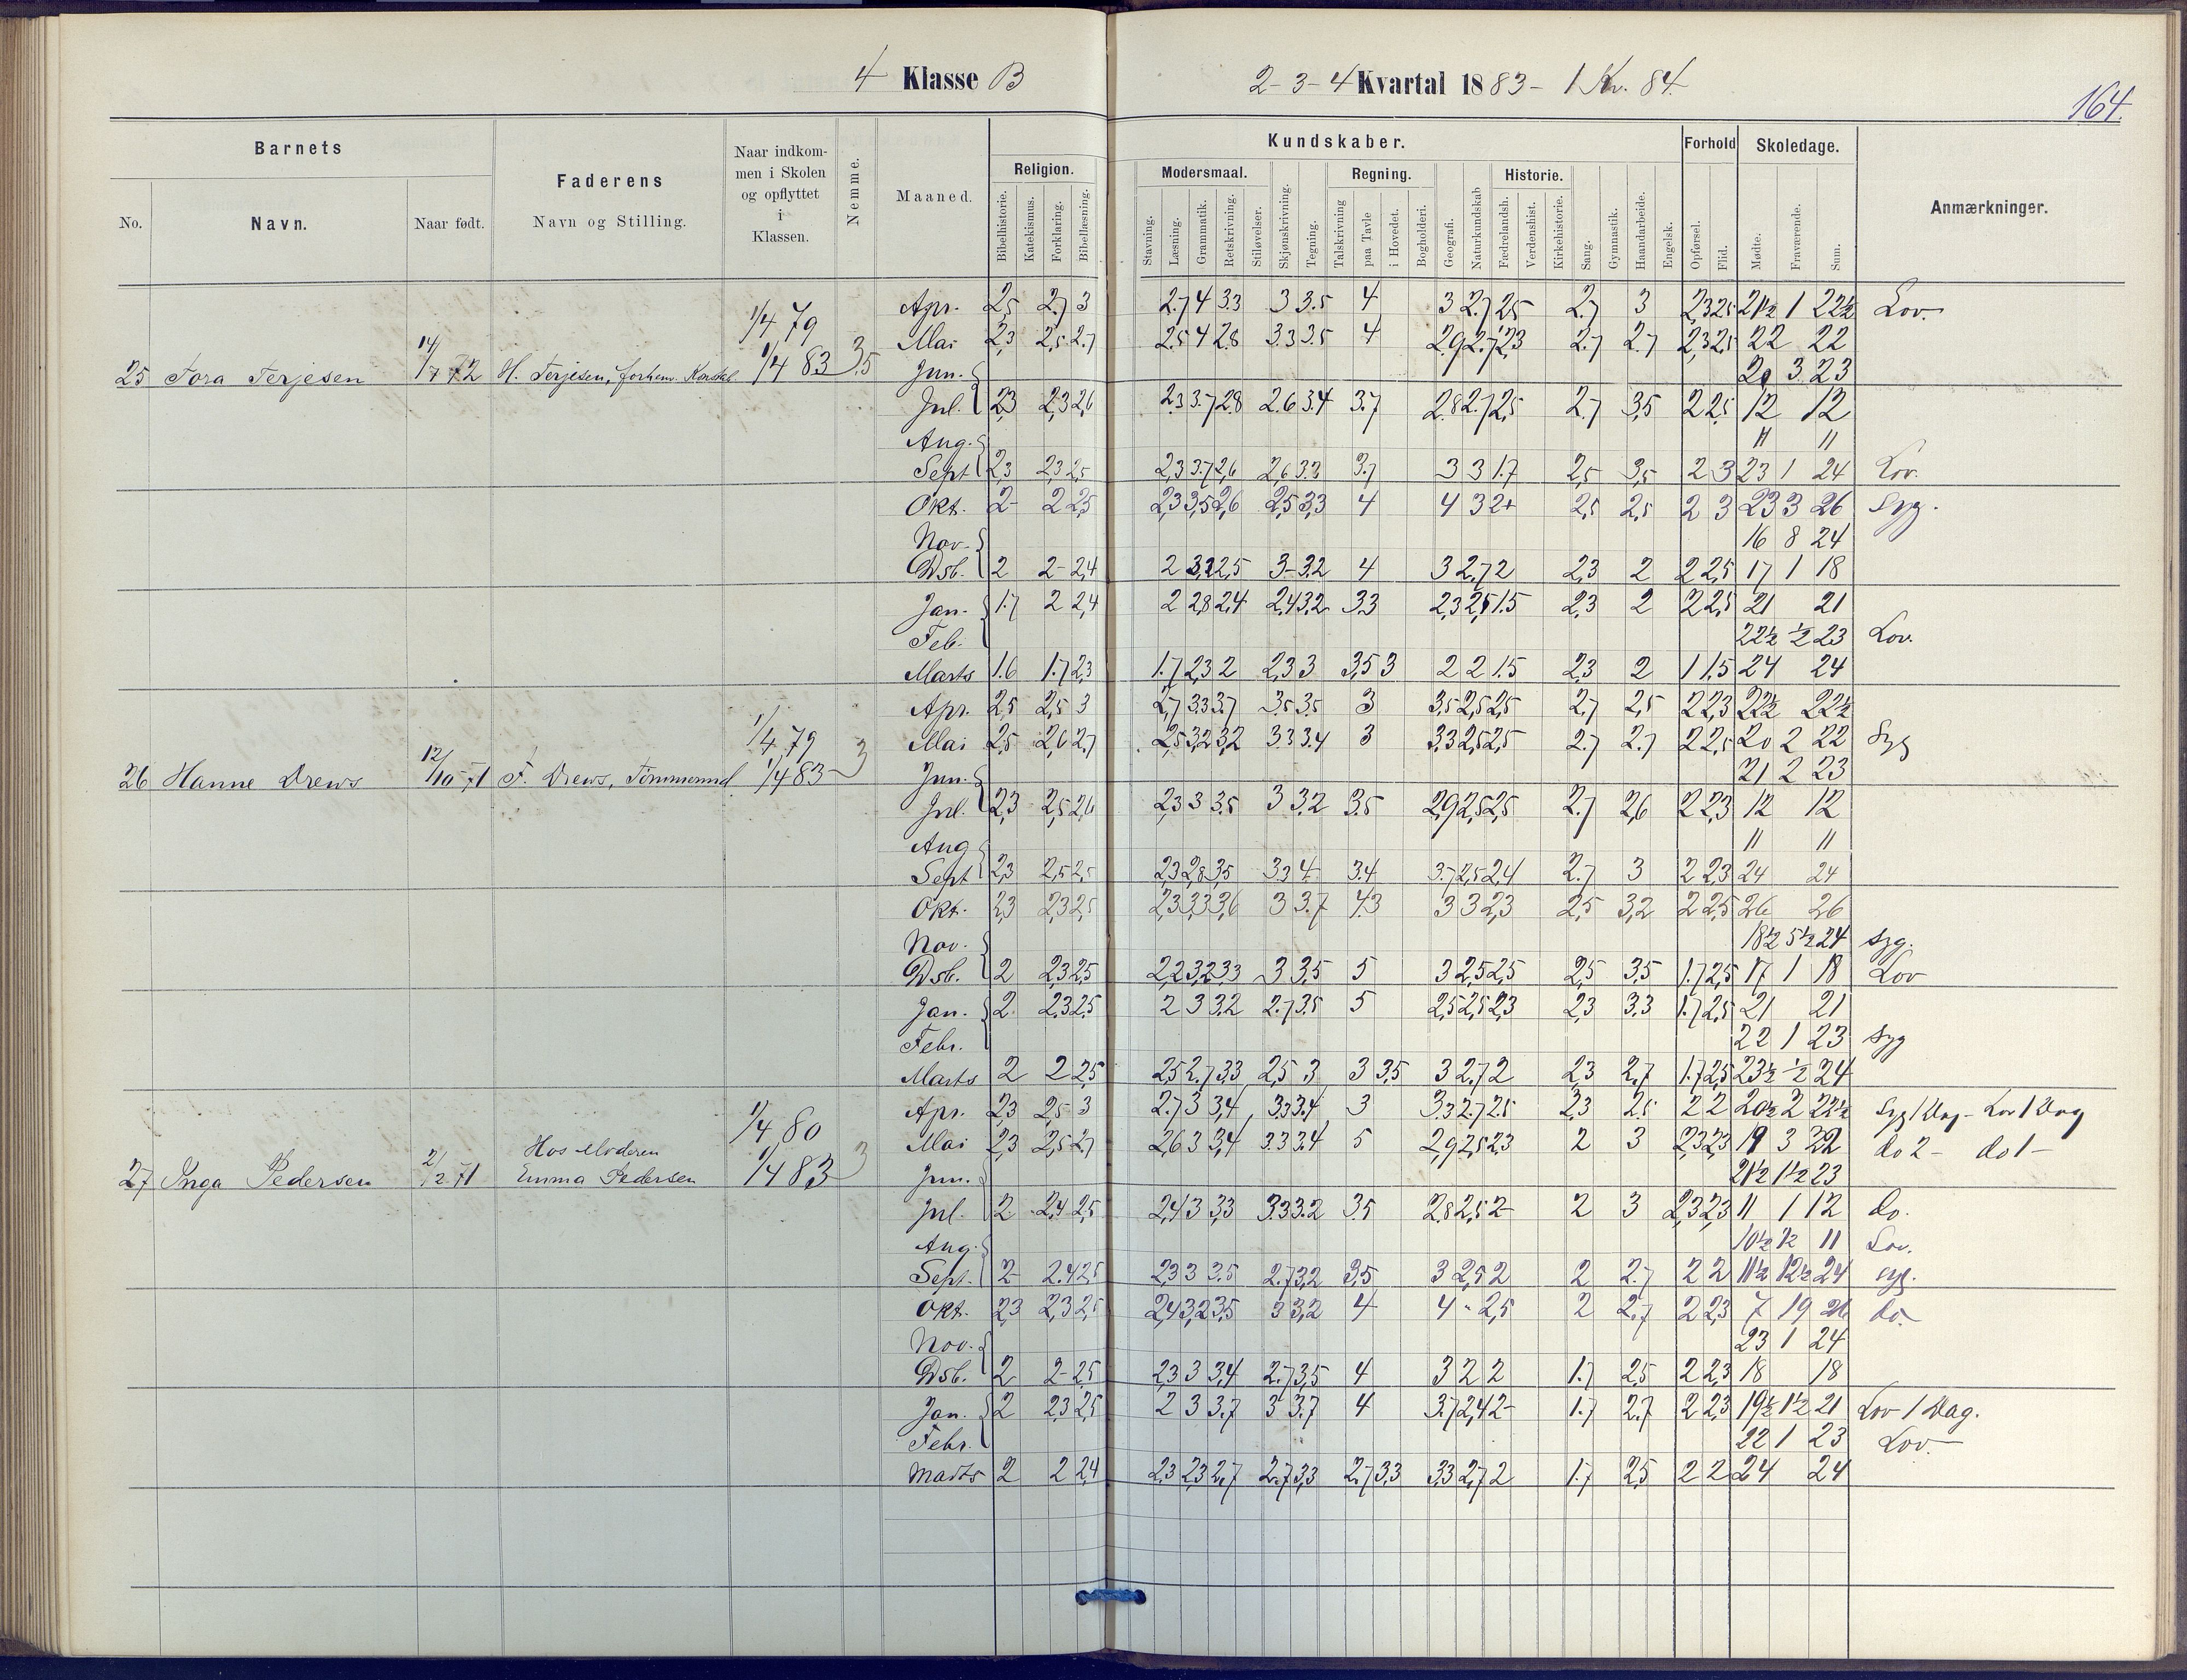 4 Klasse B
2-3-4 Kvartal 1883 - 1 Kv. 84.
164.
Barnets
No.
Navn.
Naar født.
Faderens
Navn og Stilling.
Naar indkom-
men i Skolen
og opflyttet
i
Klassen.
Nemme.
Maaned.
Religion.
Bibelhistorie.
Katekismus.
Forklaring.
Bibellæsning.
Kundskaber.
Modersmaal.
Stavning.
Læsning.
Grammatik.
Retskrivning.
Stiløvelser.
Skjønskrivning.
Tegning.
Regning.
Talskrivning
paa Tavle
i Hovedet.
Bogholderi.
Geografi.
Naturkundskab
Historie.
Fædrelandsh.
Verdenshist.
Kirkehistorie.
Sang.
Gymnastik.
Haandarbeide.
Engelsk.
Forhold
Opførsel.
Flid.
Skoledage.
Mødte.
Fraværende.
Sum.
Anmærkninger.
25 Tora Terjesen 14/7 72 H. Terjesen, forhenv. Konstab. 1/4 79 1/4 83 3.5
Apr. 2,5 2.7 3 2.7 4 3.3 3 3.5 4 3 2.7 2,5 2.7 3 2,3 2,5 21½ 1 22½ Lov.
Mai 2,3 2,5 2.7 2.5 4 2.8 3.3 3.5 4 2.9 2.7 2,3 2.7 2.7 2,3 2,5 22 22
Jun. 20 3 23
Jul. 2,3 2,3 2,6 2.3 3.7 2.8 2.6 3.4 3.7 2.8 2.7 2,5 2.7 3,5 2 2,5 12 12
Aug. 11 11
Sept 2,3 2,3 2,5 2,3 3.7 2,6 2,6 3.3 3.7 3 3 1.7 2,5 3,5 2 3 23 1 24 Lov.
Okt. 2- 2 2,5 2,3 3,5 2,6 2,5 3,3 4 4 3 2+ 2,5 2,5 2 3 23 3 26 Syg.
Nov. 16 8 24
Dsb. 2 2- 2,4 2 3.2 2,5 3- 3.2 4 3 2.7 2 2,3 2 2 2,5 17 1 18
Jan. 1.7 2 2,4 2 2,8 2,4 2,4 3,2 3.3 2,3 2,5 1.5 2,3 2 2 2,5 21 21
Feb. 22½ ½ 23 Lov.
Marts 1.6 1.7 2,3 1.7 2,3 2 2,3 3 3,5 3 2 2 1.5 2,3 2 1 1,5 24 24
26 Hanne Drews 12/10 71 F. Drews, Tømmermd. 1/4 79 1/4 83 3
Apr. 2,5 2,5 3 2,7 3.3 3.7 3.5 3.5 3 3,5 2,5 2,5 2.7 2,5 2 2,3 22½ 22½
Mai 2,5 2,6 2.7 2,5 3,2 3,2 3.3 3.4 3 3.3 2,5 2,5 2.7 2.7 2 2,5 20 2 22 Syg
Jun. 21 2 23
Jul. 2,3 2,5 2,6 2,3 3 3.5 3 3.2 3.5 2,9 2,5 2,5 2.7 2,6 2 2,3 12 12
Aug 11 11
Sept 2,3 2,5 2,5 2,3 2,8 3,5 3.3 4 3.4 3.7 2,5 2,4 2.7 3 2 2,3 24 24
Okt. 2,3 2,3 2,5 2,3 3,3 3,6 3 3.7 4.3 3 3 2,3 2,5 3,2 2 2,5 26 26
Nov. 18½ 5½ 24 Syg.
Dsb. 2 2,3 2,5 2,2 3,2 3,3 3 3,5 5 3 2,5 2,5 2,5 3.5 1.7 2,5 17 1 18 Lov
Jan. 2 2,3 2,5 2 3 3.2 2.7 3.5 5 2,5 2,5 2,3 2,3 3.3 1.7 2,5 21 21
Febr. 22 1 23 Syg
Marts 2 2 2,5 2,5 2.7 3,3 2,5 3 3 3.5 3 2.7 2 2,3 2.7 1.7 2,5 23½ ½ 24
27 Inga Pedersen 2/2 71 Hos Moderen
Emma Pedersen 1/4 80 1/4 83 3
Apr. 2,3 2,5 3 2.7 3 3,4 3.3 3.4 3 3.3 2.7 2.5 2,3 2,5 2 2 20½ 2 22½ Syg 1 Dag - Lov 1 Dag
Mai 2,3 2,5 2.7 2.6 3 3,4 3.3 3.4 5 2,9 2,5 2,3 2 3 2,3 2,3 19 3 22 do 2 - do 1 -
Jun. 21½ 1½ 23
Jul. 2 2,4 2,5 2,4 3 3,3 3.3 3.2 3.5 2.8 2,5 2 2 3 2,3 2,3 11 1 12 do.
Aug. 10½ ½ 11 Lov.
Sept. 2 2.4 2,5 2,3 3 3.5 2.7 3,2 3,5 3 2,5 2 2 2.7 2 2 11½ 12½ 24 Syg.
Okt. 2,3 2,3 2,5 2,4 3,2 3,5 3 3,2 4 4 - 2,5 2 2,7 2 2,3 7 19 26 do.
Nov. 23 1 24
Dsb. 2 2- 2,5 2,3 3 3,4 2.7 3,5 4 3 2 2 1.7 2,5 2 2,3 18 18
Jan. 2 2,3 2,5 2 3 3.7 3 3.7 4 3.7 2,4 2- 1.7 2.7 2 2,3 19½ 1½ 21 Lov 1 Dag.
Febr. 22 1 23 Lov.
Marts 2 2 2,4 2.3 2,3 2,7 2.7 3,3 2.7 3,3 3.3 2,7 2 1.7 2,5 2 2 24 24